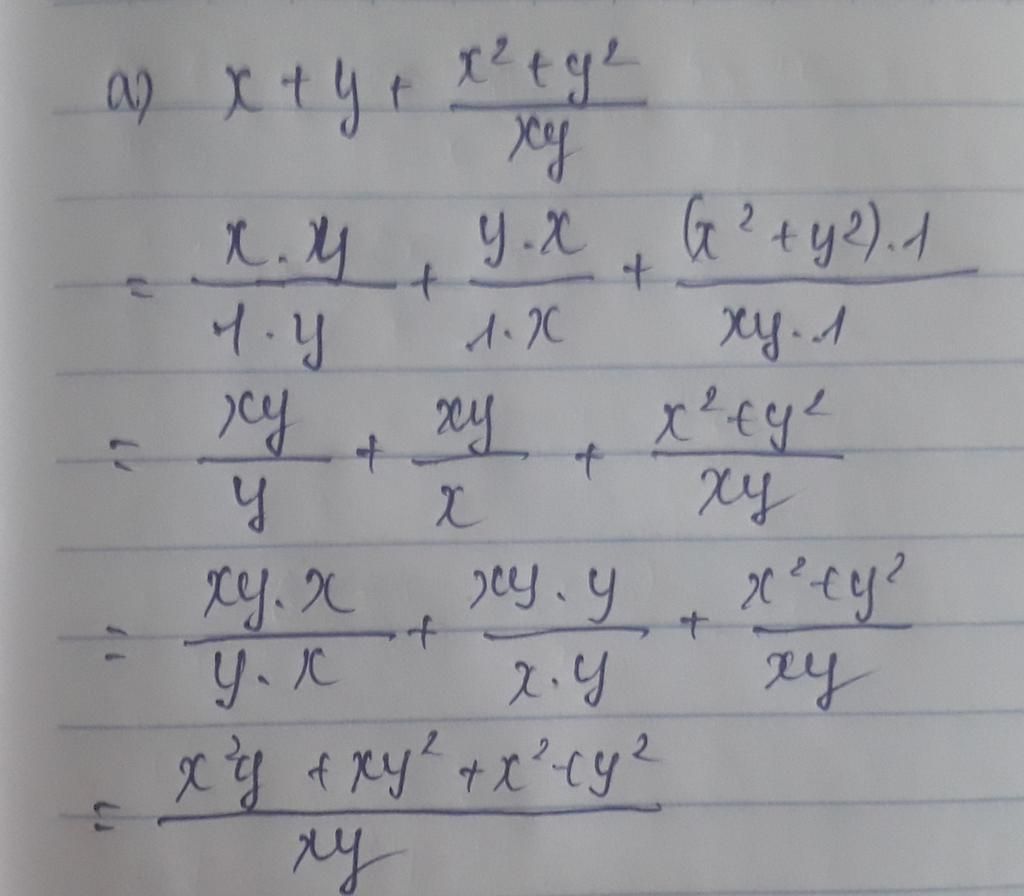 a) x + y + \frac{x^2 + y^2}{xy}
= \frac{x . xy}{1 . y} + \frac{y . x}{1 . x} + \frac{(x^2 + y^2) . 1}{xy . 1}
= \frac{xy}{y} + \frac{xy}{x} + \frac{x^2 + y^2}{xy}
= \frac{xy . x}{y . x} + \frac{xy . y}{x . y} + \frac{x^2 + y^2}{xy}
= \frac{x^2y + xy^2 + x^2 + y^2}{xy}